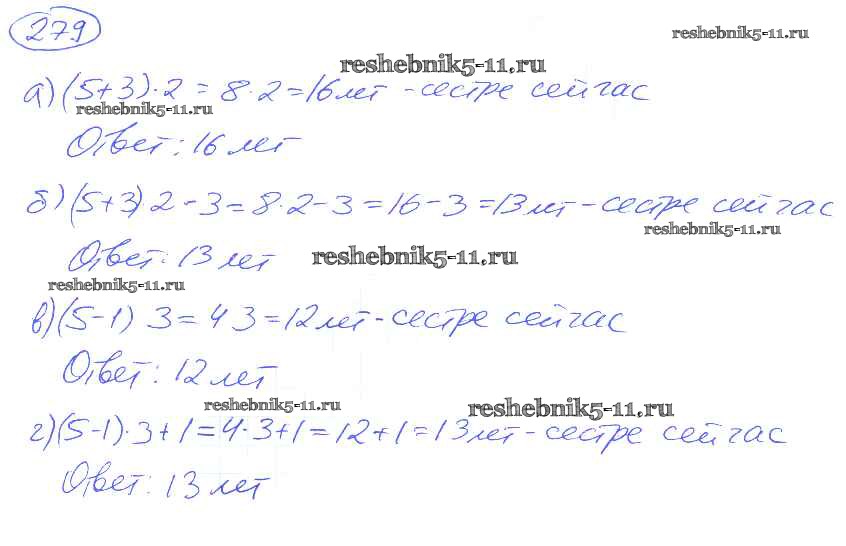 279
reshebnik5-11.ru
reshebnik5-11.ru
а) (5+3)·2 = 8·2 = 16 лет - сестре сейчас
reshebnik5-11.ru
Ответ: 16 лет
б) (5+3) 2 - 3 = 8·2 - 3 = 16 - 3 = 13 лет - сестре сейчас
reshebnik5-11.ru
Ответ: 13 лет
reshebnik5-11.ru
reshebnik5-11.ru
в) (5-1) 3 = 4 3 = 12 лет - сестре сейчас
Ответ: 12 лет
reshebnik5-11.ru
reshebnik5-11.ru
г) (5-1)·3+1 = 4·3+1 = 12+1 = 13 лет - сестре сейчас
Ответ: 13 лет